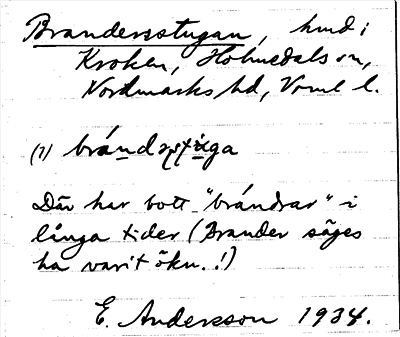 Brandersstugan, hmd i
Kroken, Holmedals sn,
Nordmarks hd, Verml l.
(1) brándstúga
Där har bott "brándrar" i
långa tider (Brander säges
ha varit ökn. !)
E. Andersson 1934.